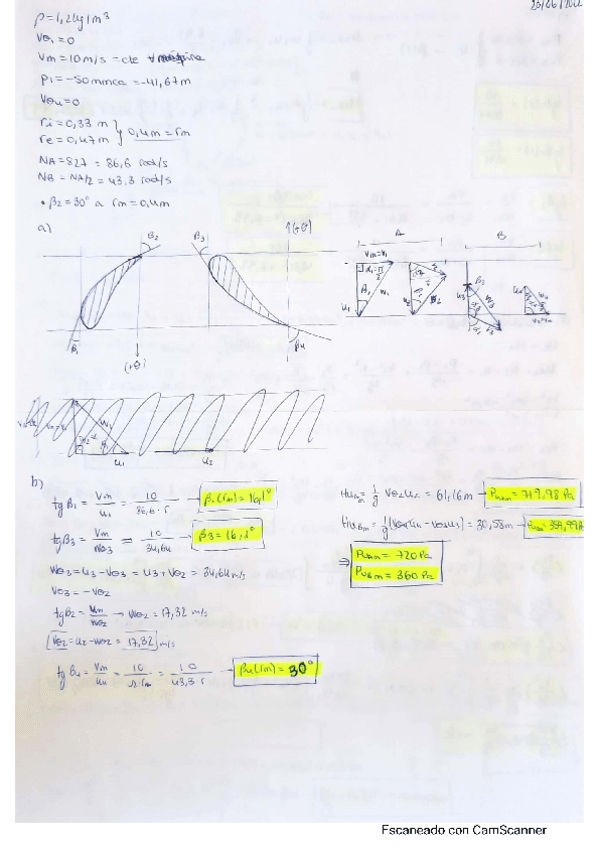 23/06/2022
ρ=1,2kg/m³
Vθ₁=0
Vm=10m/s=cte
p₁=-50mmca=-41,67m
Vθ₄=0
ri=0,33 m
re=0,47m } 0,4m=rm
NA=827 = 86,6 rad/s
NB = NA/2 = 43,3 rad/s
• β₂=30° a rm=0,4m
a)
β₂
β₃
(+θ)
β₁
(+θ)
β₄
A
B
u₁
b)
u₁
u₂
tgβ₁ = Vm/u₁ = 10/86,6·r → β₁(rm)=16,1°
tgβ₃ = Vm/Wθ₃ = 10/34,64 → β₃=16,1°
Wθ₃=u₃-Vθ₃=u₃+Vθ₂=34,64m/s
Vθ₃=-Vθ₂
tgβ₂=Vm/Wθ₂ → Wθ₂=17,32 m/s
Vθ₂=u₂-Wθ₂=17,32 m/s
tgβ₄=Vm/u₄=10/Ω·rm=10/43,3 r → β₄(rm)=30°
= 1/g Vθ₂u₂ = 61,16m → = 719,98 Pa
= 1/g (Vθ₄u₄-Vθ₃u₃) = 30,58m → = 359,99Pa
⇒ = 720 Pa
= 360 Pa
Escaneado con CamScanner